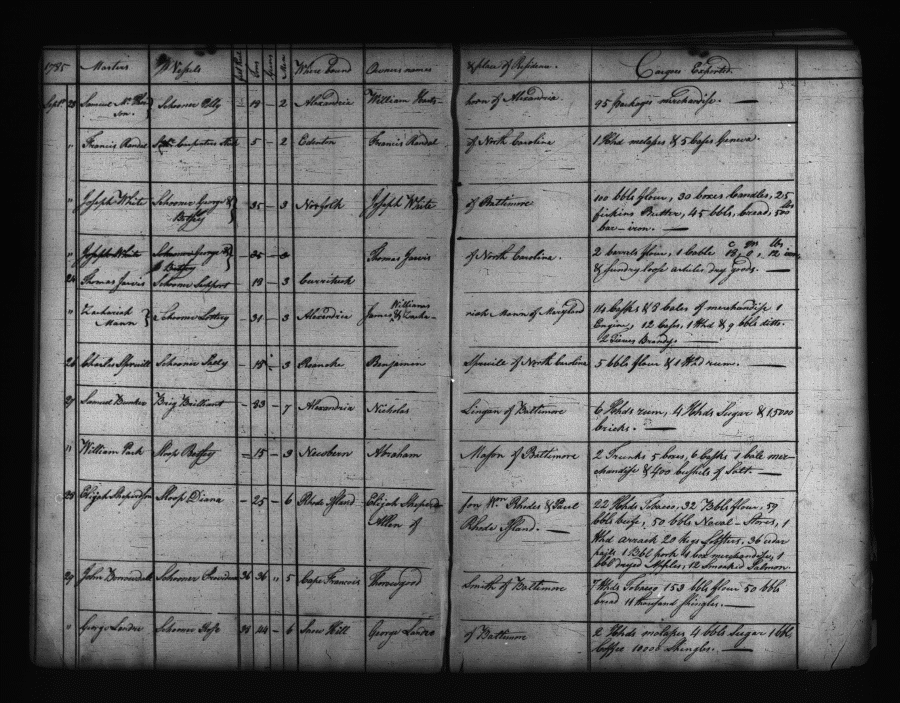 1785 Masters Vessels Tons Guns Men Where bound Owners names & place of Residence. Cargoes Exported.
Sept. 23 Samuel Mc Pher Schooner Polly 19 - 2 Alexandria William Harts horn of Alexandria 95 packages merchandise. —
son.
" Francis Randal 5 - 2 Edenton Francis Randal of North Carolina 1 Hhd molasses & 5 Cases Geneva.
" Joseph White Schooner George & 35 - 3 Norfolk Joseph White of Baltimore 100 bbls flour, 30 boxes Candles, 25
Betsey firkins Butter, 45 bbls, bread, 500 lbs
bar-iron. —
" Joseph White Schooner George & 35 - 3 Thomas Jarvis of North Carolina. 2 barrels flour, 1 Cable
Betsey & sundry dry goods. —
24 Thomas Jarvis Schooner 19 - 3 Currituck
" Zachariah Schooner Lottery 31 - 3 Alexandria James & Zacha- Williams riah Mann of Maryland 14 Casks & 3 bales of merchandise 1
Mann Engine, 12 Cases, 1 Hhd & 9 bbls ditto.
2 Tierces Brandy. —
26 Charles Spruill Schooner Patsy - 15 - 3 Roanoke Benjamin Spruill of North Carolina 5 bbls flour & 1 Hhd rum. —
27 Samuel Bunker Brig Brilliant - 83 - 7 Alexandria Nicholas Lingan of Baltimore 6 Hhds rum, 4 Hhds Sugar & 15000
bricks. —
" William Park Sloop Betsey - 15 - 3 Newbern Abraham Mason of Baltimore 2 Trunks 5 boxes, 6 Casks 1 bale mer-
chandise & 400 bushels of Salt. —
28 Elijah Shepardson Sloop Diana - 25 - 6 Rhode Island Elijah Shepard son Wm Rhodes & Paul 22 Hhds Tobacco, 32 bbls flour, 59
Allen of Rhode Island. — bbls beef, 50 bbls Naval-Stores, 1
Hhd arrack 20 kegs 36 cedar
pails 1 bbl pork 4 box merchandise, 1
bbl dryed Apples, 12 Smoaked Salmon.
29 John Schooner 36 36 " 5 Cape Francois Thorowgood Smith of Baltimore 7 Hhds Tobacco 153 bbls flour 50 bbls
bread 11 thousand shingles. —
" George Schooner 44 - 6 Snow Hill George of Baltimore 2 Hhds molasses 4 bbls Sugar 1 bbl,
Coffee 10000 Shingles. —